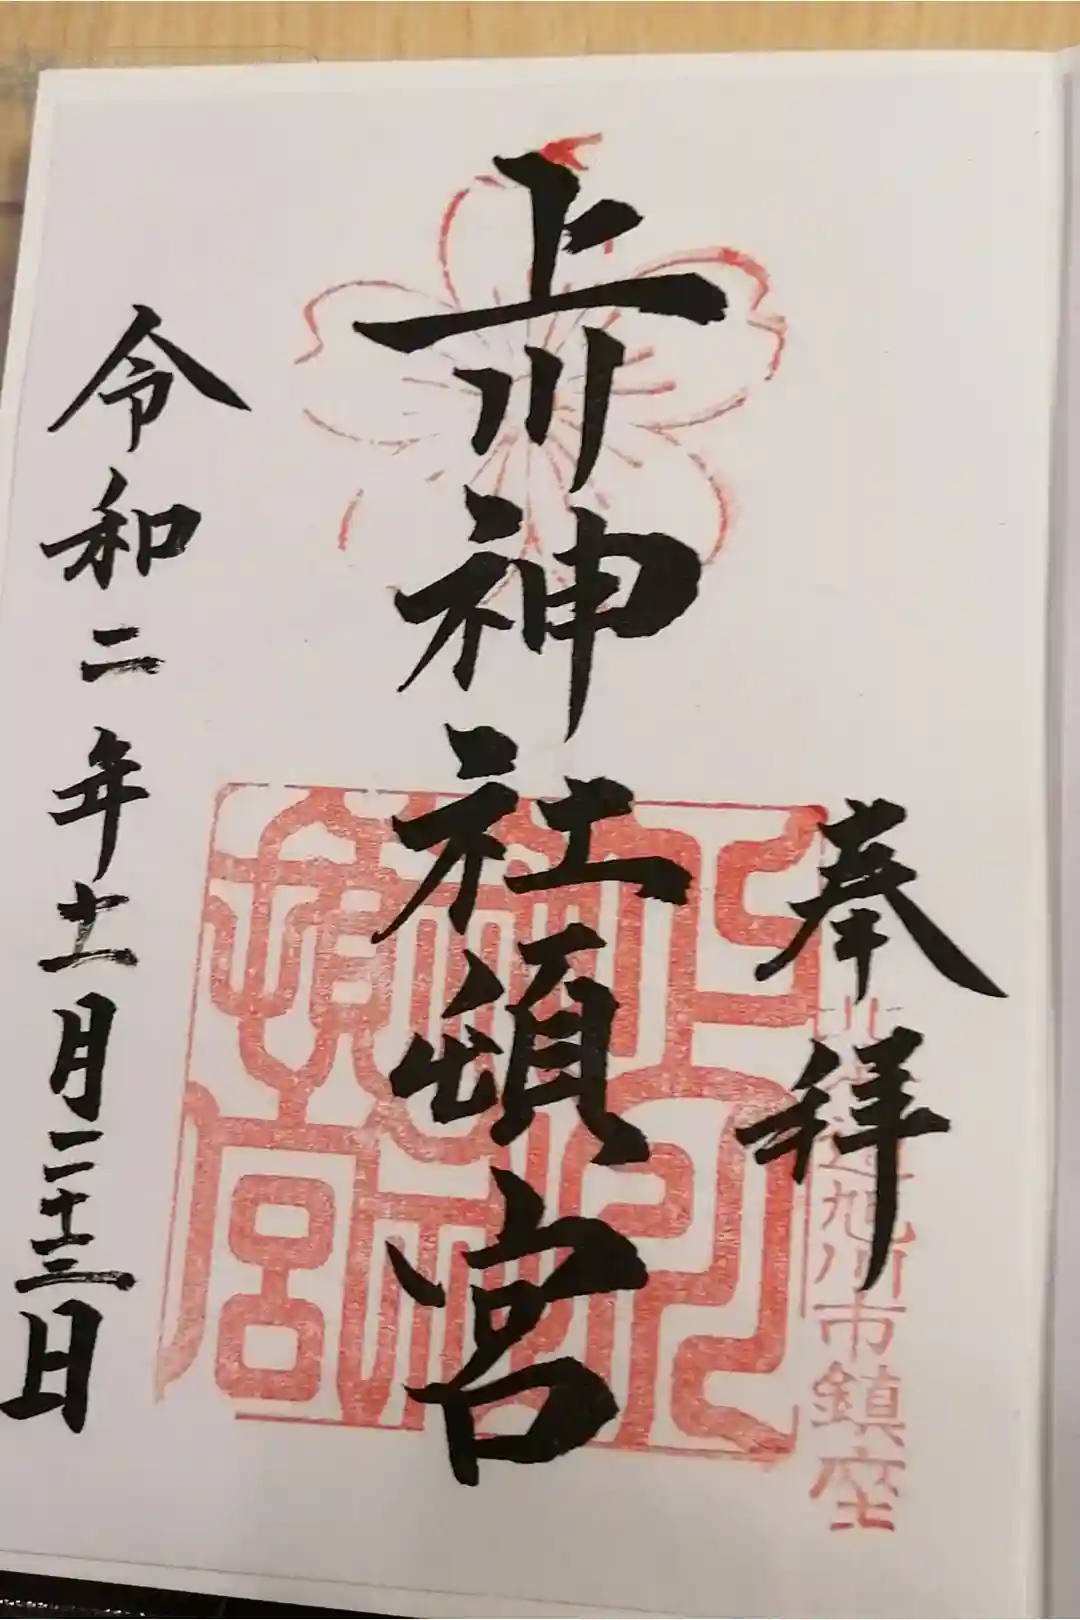 奉拝
北海道旭川市鎮座
上川神社頓宮
上川神社頓宮
令和二年十一月二十三日